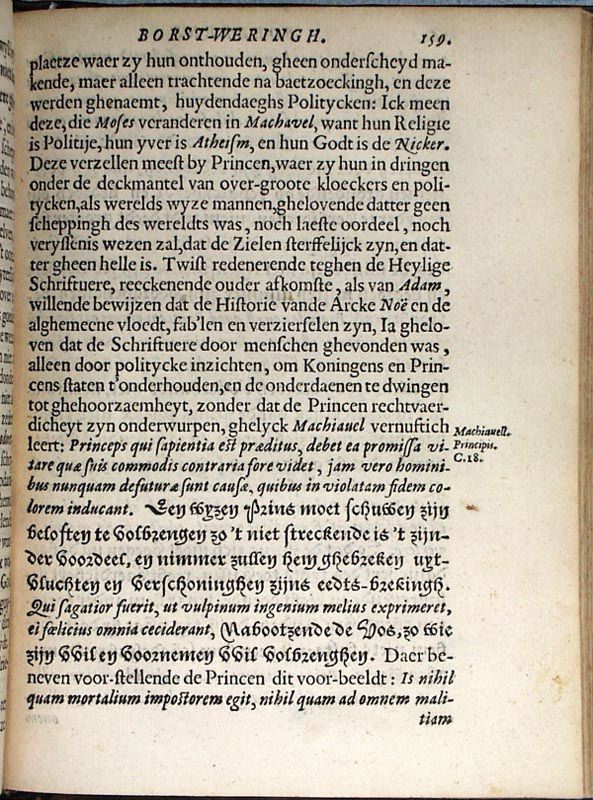 BORST-WERINGH. 159.
plaetze waer zy hun onthouden, gheen onderscheyd ma-
kende, maer alleen trachtende na baetzoeckingh, en deze
werden ghenaemt, huydendaeghs Politycken: Ick meen
deze, die Moſes veranderen in Machavel, want hun Religie
is Politije, hun yver is Atheiſm, en hun Godt is de Nicker.
Deze verzellen meeſt by Princen, waer zy hun in dringen
onder de deckmantel van over-groote kloeckers en poli-
tycken, als werelds wyze mannen, ghelovende datter geen
ſcheppingh des wereldts was, noch laeſte oordeel, noch
veryſſenis wezen zal, dat de Zielen ſterffelijck zyn, en dat-
ter gheen helle is. Twiſt redenerende teghen de Heylige
Schriftuere, reeckenende ouder afkomſte, als van Adam,
willende bewijzen dat de Hiſtorie vande Arcke Noë en de
alghemeene vloedt, fab'len en verzierſelen zyn, Ia ghelo-
ven dat de Schriftuere door menſchen ghevonden was,
alleen door politycke inzichten, om Koningens en Prin-
cens ſtaten t'onderhouden, en de onderdaenen te dwingen
tot ghehoorzaemheyt, zonder dat de Princen rechtvaer-
dicheyt zyn onderwurpen, ghelyck Machiauel vernuftich
leert: Princeps qui ſapientia eſt præditus, debet ea promiſſa vi-
tare quæ ſuis commodis contraria fore videt, jam vero homini-
bus nunquam defuturæ ſunt cauſæ, quibus in violatam fidem co-
lorem inducant. Een wyzen Prins moet ſchuwen zijn
beloften te volbrengen zo 't niet ſtreckende is 't zijn-
der voordeel, en nimmer zullen hem ghebreken uyt-
vluchten en verſchoninghen zijns eedts-brekingh.
Qui ſagatior fuerit, ut vulpinum ingenium melius exprimeret,
ei fœlicius omnia ceciderant, Nabootzende de Vos, zo wie
zijn wil en voornemen wil volbrenghen. Daer be-
neven voor-ſtellende de Princen dit voor-beeldt: Is nihil
quam mortalium impoſtorem egit, nihil quam ad omnem mali-
tiam
Machiavell.
Principis.
C.18.